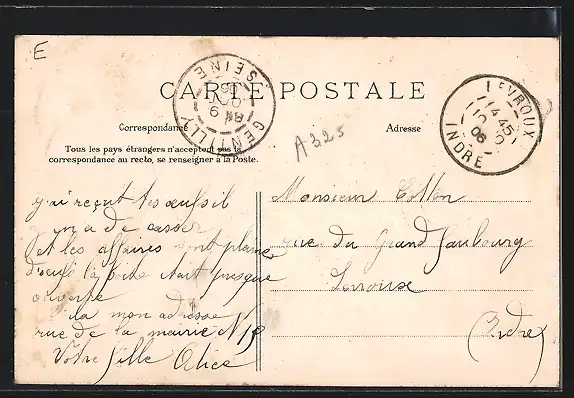 E
CARTE POSTALE
GENTILLY
SEINE
LEVROUX
14 45
10
06
INDRE
A325
Correspondance
Adresse
Tous les pays étrangers n'acceptent pas la
correspondance au recto, se renseigner à la Poste.
j'ai reçut tes œufs il
y en a de casser
et les affaires sont plaines
d'œufs la boite étart presque
ouverte
la mon adresse
rue de la mairie N 19
Votre fille Alice
Monsieur
rue du Grand faubourg
Levroux
Indre